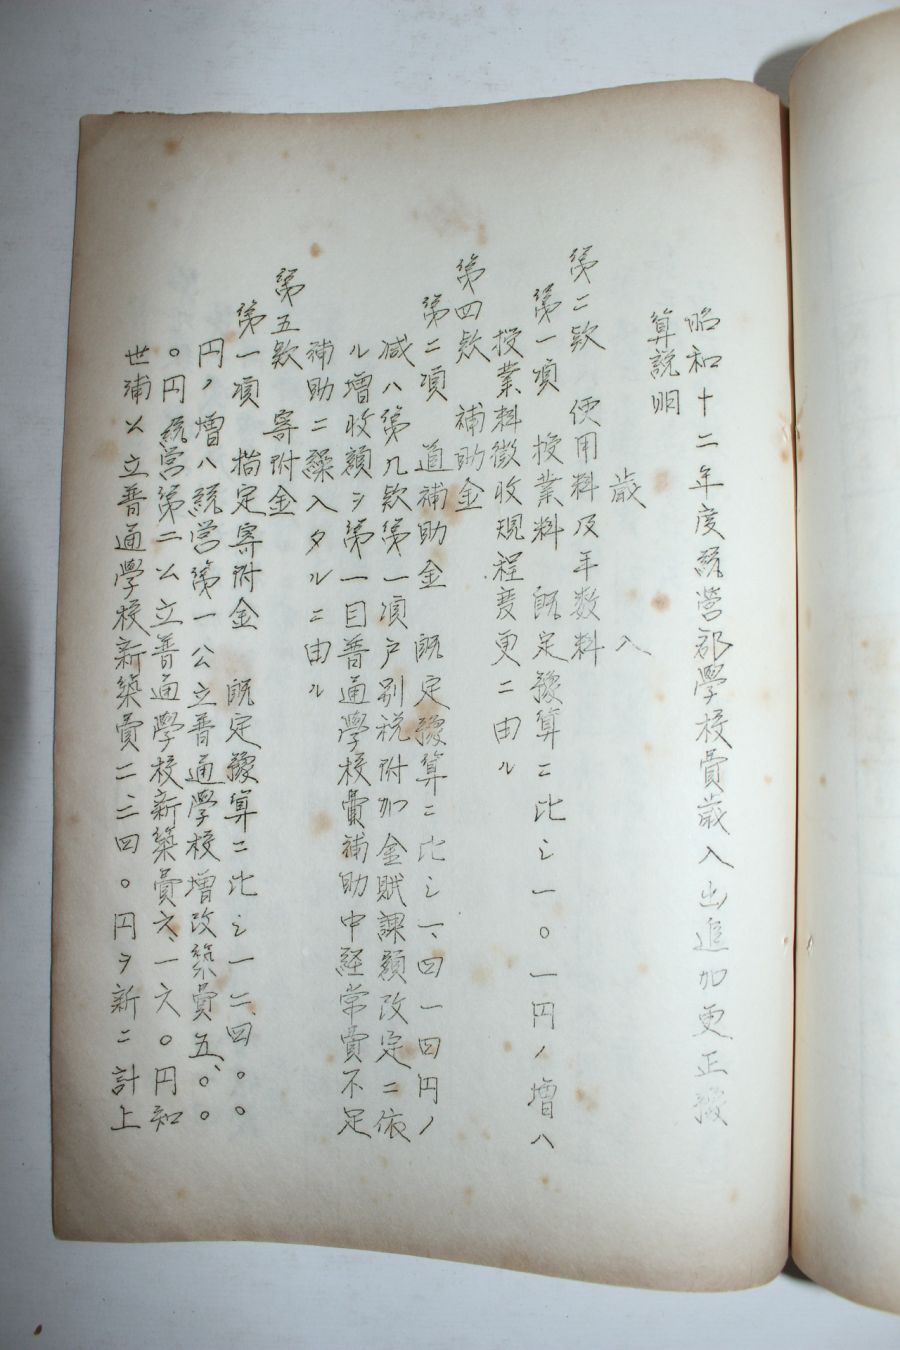 昭和十二年度統営郡學校費歳入出追加更正豫
算説明
歳入
第二款 使用料及手数料
第一項 授業料 既定豫算ニ比シ一〇一円ノ増ハ
授業料徴收規程変更ニ由ル
第四款 補助金
第二項 道補助金 既定豫算ニ比シ一、四一四円ノ
减ハ第九款第一項戸別税附加金賦課額改定ニ依
ル増收額ヲ第一目普通學校費補助中経常費不足
補助ニ繰入タルニ由ル
第五款 寄附金
第一項 指定寄附金 既定豫算ニ比シ一二、四〇〇
円ノ増ハ統営第一公立普通學校増改築費五、〇〇
〇円統営第二公立普通學校新築費六、一六〇円和
世浦公立普通學校新築費二、二四〇円ヲ新ニ計上